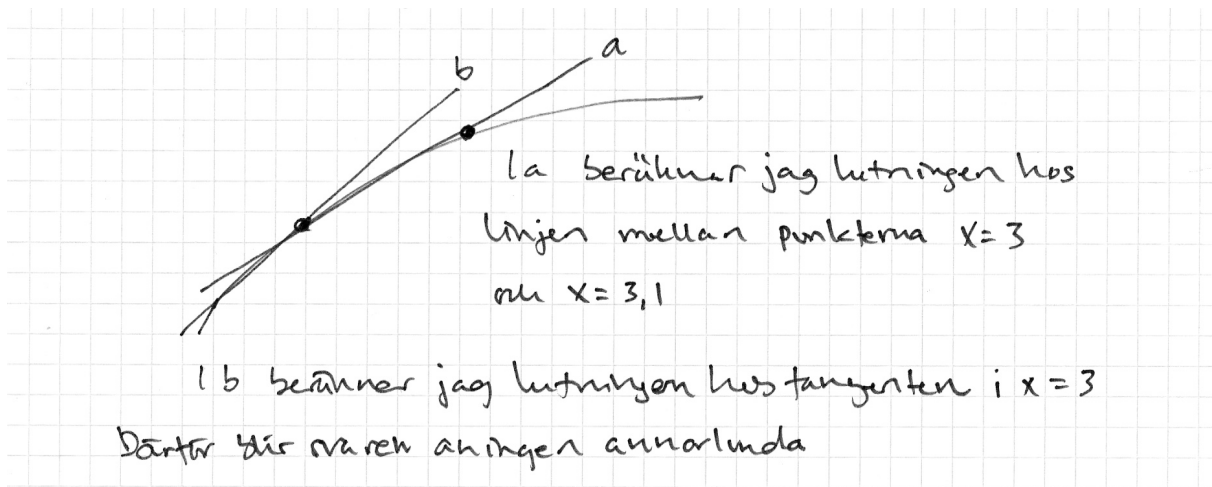 b
a
Ia beräknar jag lutningen hos
linjen mellan punkterna x = 3
och x = 3,1
I b beräknar jag lutningen hos tangenten i x = 3
Därför blir svaren aningen annorlunda